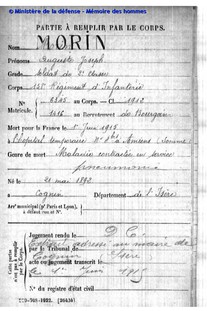 © Ministère de la défense - Mémoire des hommes
PARTIE À REMPLIR PAR LE CORPS.
Nom MORIN
Prénoms Auguste Joseph
Grade Soldat de 2e classe
Corps Régiment d'Infanterie
N° au Corps. — Cl. 1913
Matricule. au Recrutement de Bourgoin
Mort pour la France le 1er Juin 1915
à l'hôpital temporaire à Amiens (Somme)
Genre de mort Maladie contractée en service
pneumonie
Né le 21 mai 1893
à Cognin Département de l'Isère
Arrt municipal (pr Paris et Lyon),
à défaut rue et N°.
Cette partie
n'est pas à remplir
par le Corps.
Jugement rendu le
par le Tribunal de
acte ou jugement transcrit le 1er Juin 1915
à Cognin Isère
N° du registre d'état civil